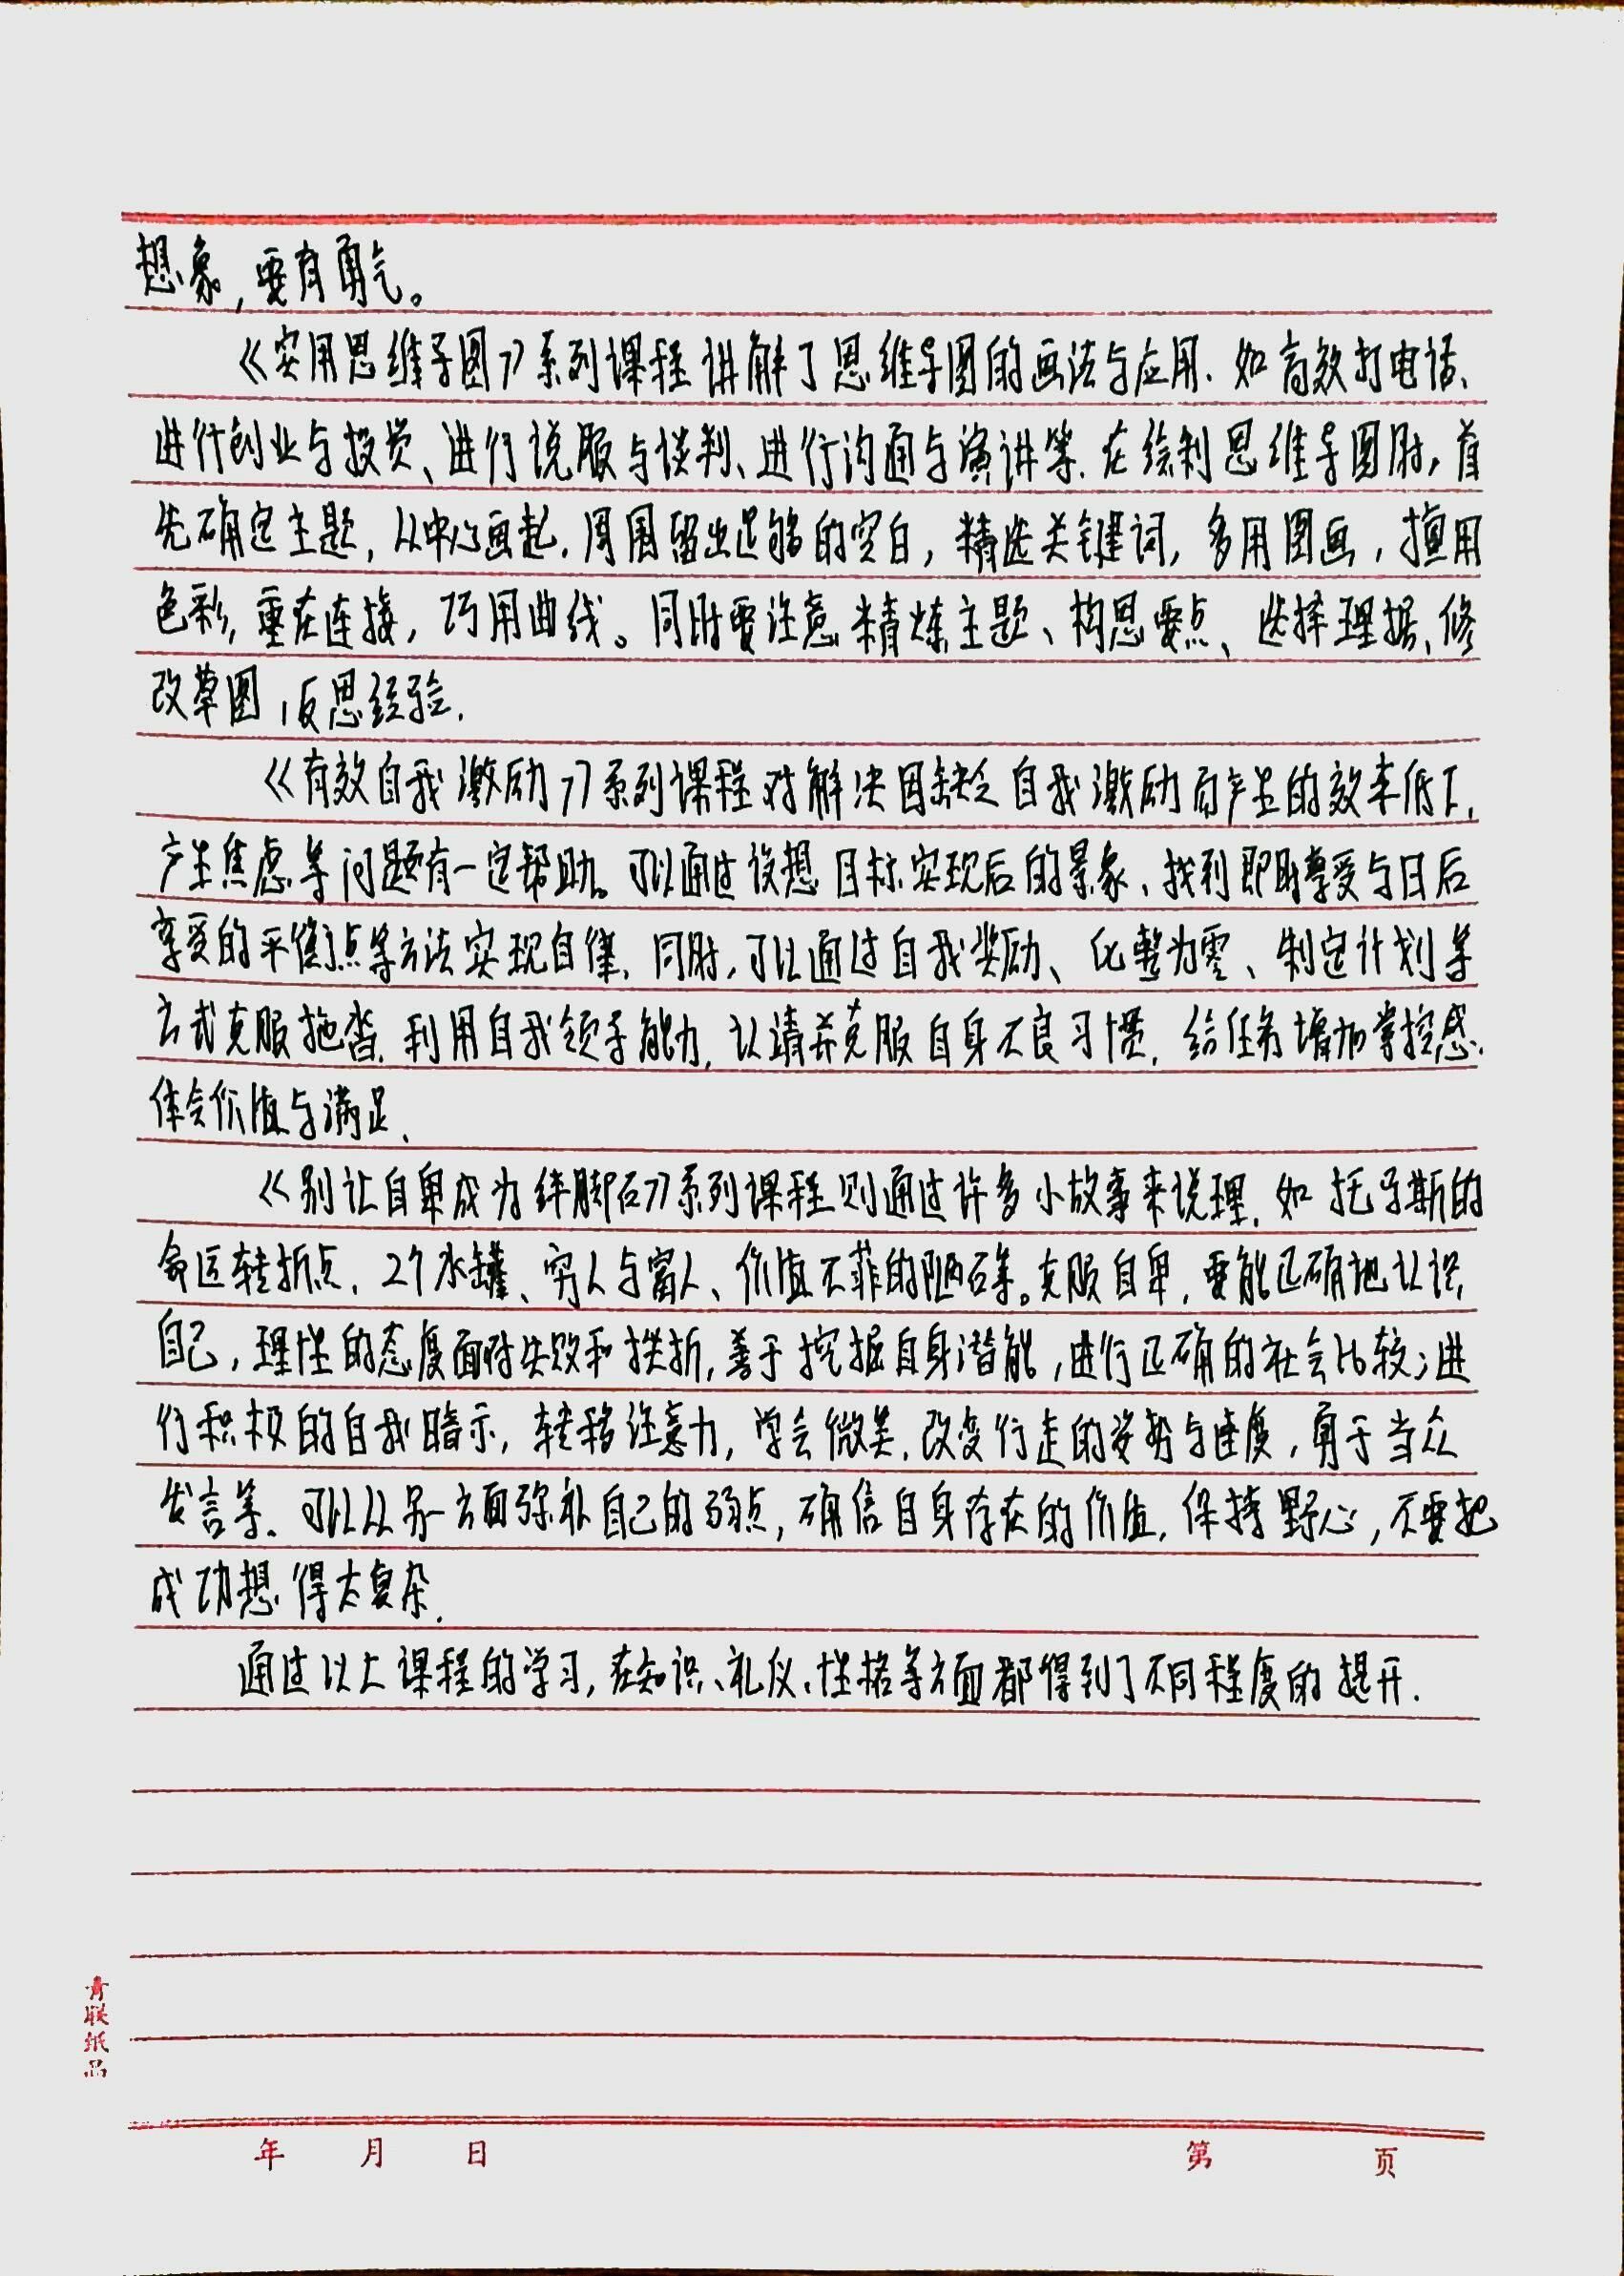 想象,要有勇气。
《实用思维导图》系列课程讲解了思维导图的画法与应用.如高效打电话、
进行创业与投资、进行说服与谈判、进行沟通与演讲等.在绘制思维导图时,首
先确定主题,从中心画起.周围留出足够的空白,精选关键词,多用图画,擅用
色彩,重在连接,巧用曲线。同时要注意精炼主题、构思要点、选择理据、修
改草图,反思经验.
《有效自我激励》系列课程对解决因缺乏自我激励而产生的效率低下、
产生焦虑等问题有一定帮助。可以通过设想目标实现后的景象、找到即时享受与日后
享受的平衡点等方法实现自律.同时,可以通过自我奖励、化整为零、制定计划等
方式克服拖沓.利用自我领导能力,认清并克服自身不良习惯.给任务增加掌控感.
体会价值与满足.
《别让自卑成为绊脚石》系列课程则通过许多小故事来说理.如托马斯的
命运转折点、2个水罐、穷人与富人、价值不菲的陋石等。克服自卑,要能正确地认识
自己,理性的态度面对失败和挫折,善于挖掘自身潜能,进行正确的社会比较;进
行积极的自我暗示,转移注意力,学会微笑.改变行走的姿势与速度,勇于当众
发言等.可以从另一方面弥补自己的弱点,确信自身存在的价值.保持野心,不要把
成功想得太复杂.
通过以上课程的学习,在知识、礼仪、性格等方面都得到了不同程度的提升.
青联纸品
年 月 日 第 页